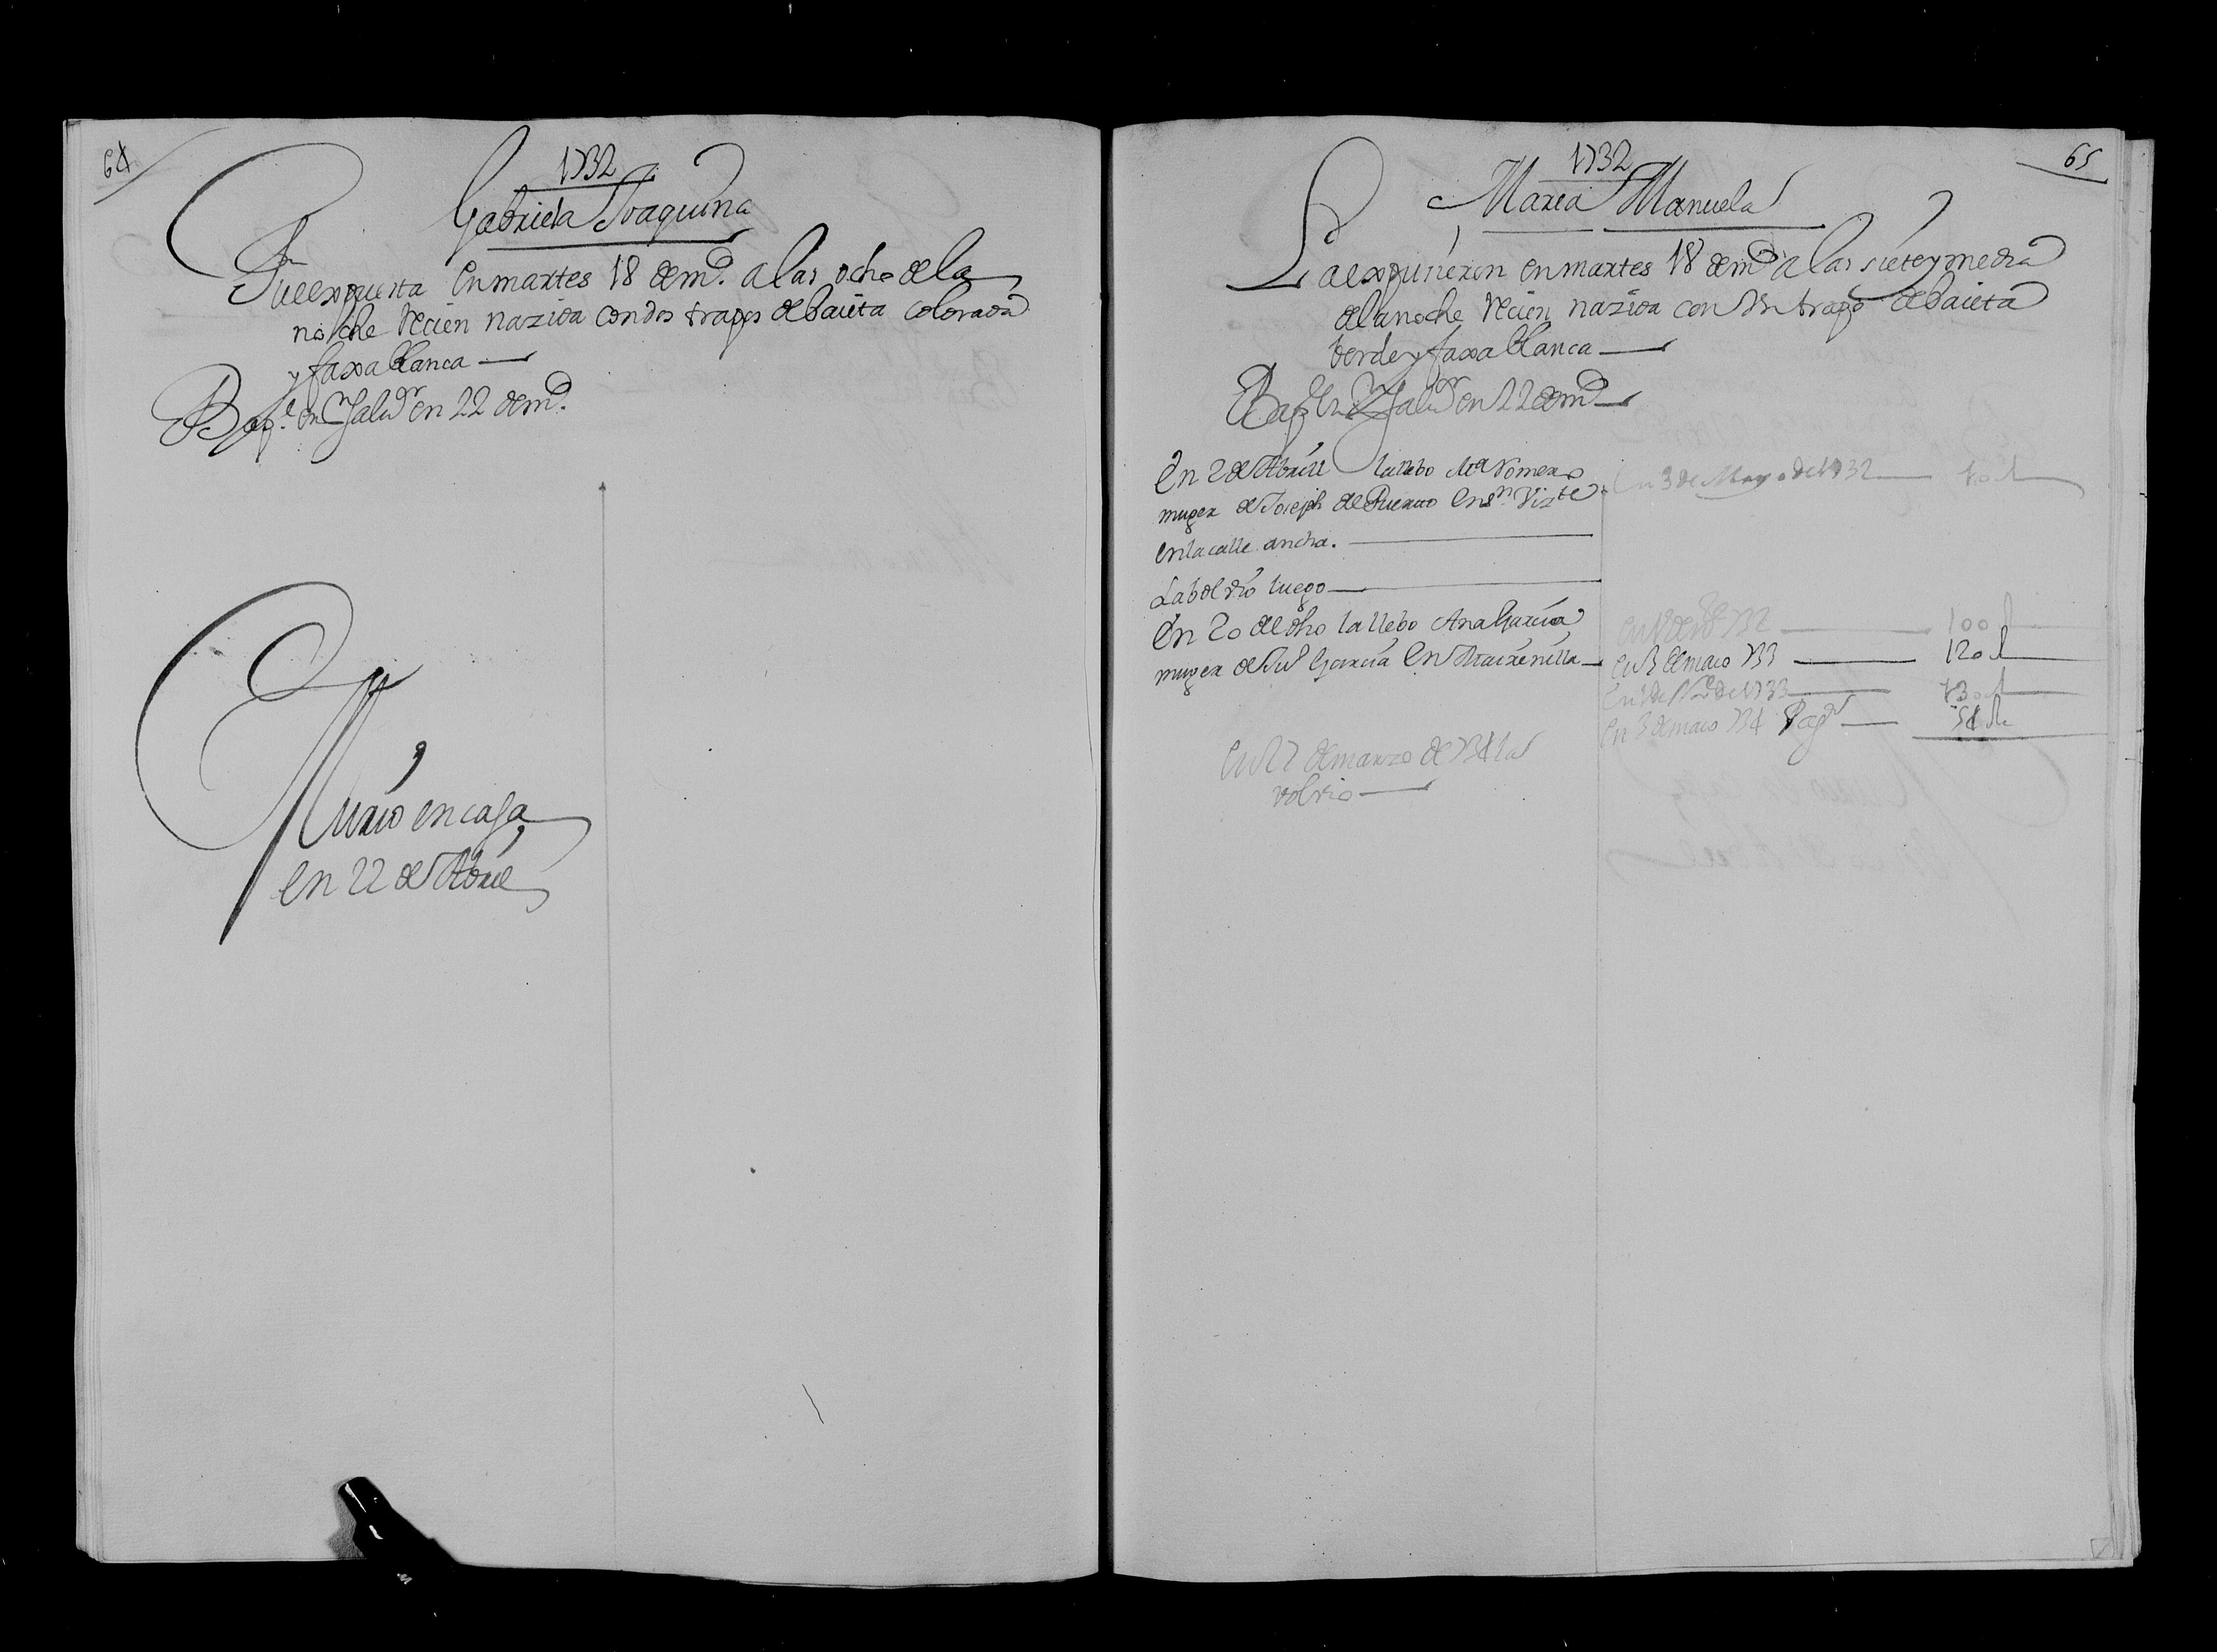 64
1732
Gabriela Joaquina
Fue expuesta en martes 18 de md. a las ocho de la
noche recien nazida con dos trapos de baieta colorada
y faxa blanca
Bapd. en Sn Salvdr en 22 de md.
Murio en casa
en 22 de Abril
65
1732
Maria Manuela
La expusieron en martes 18 de md a las siete y media
de la noche recien nazida con un trapo de baieta
berde y faxa blanca
Bapd en Sn Salvdr en 22 de md
En 2 de Abrill la llebo Ma Romero
muger de Joseph de en Sn Vizte
en la calle ancha.
La bolvio luego
En 20 de dho la llebo Ana Garcia
muger de Jul Garcia en Mairenilla
En 3 de Mayo de 1732
732 100
en 3 de maio 733 120
En de Nre de 1733 130
en 3 de maio 734 Pagd 54
En 27 de marzo de 734 la
volvio